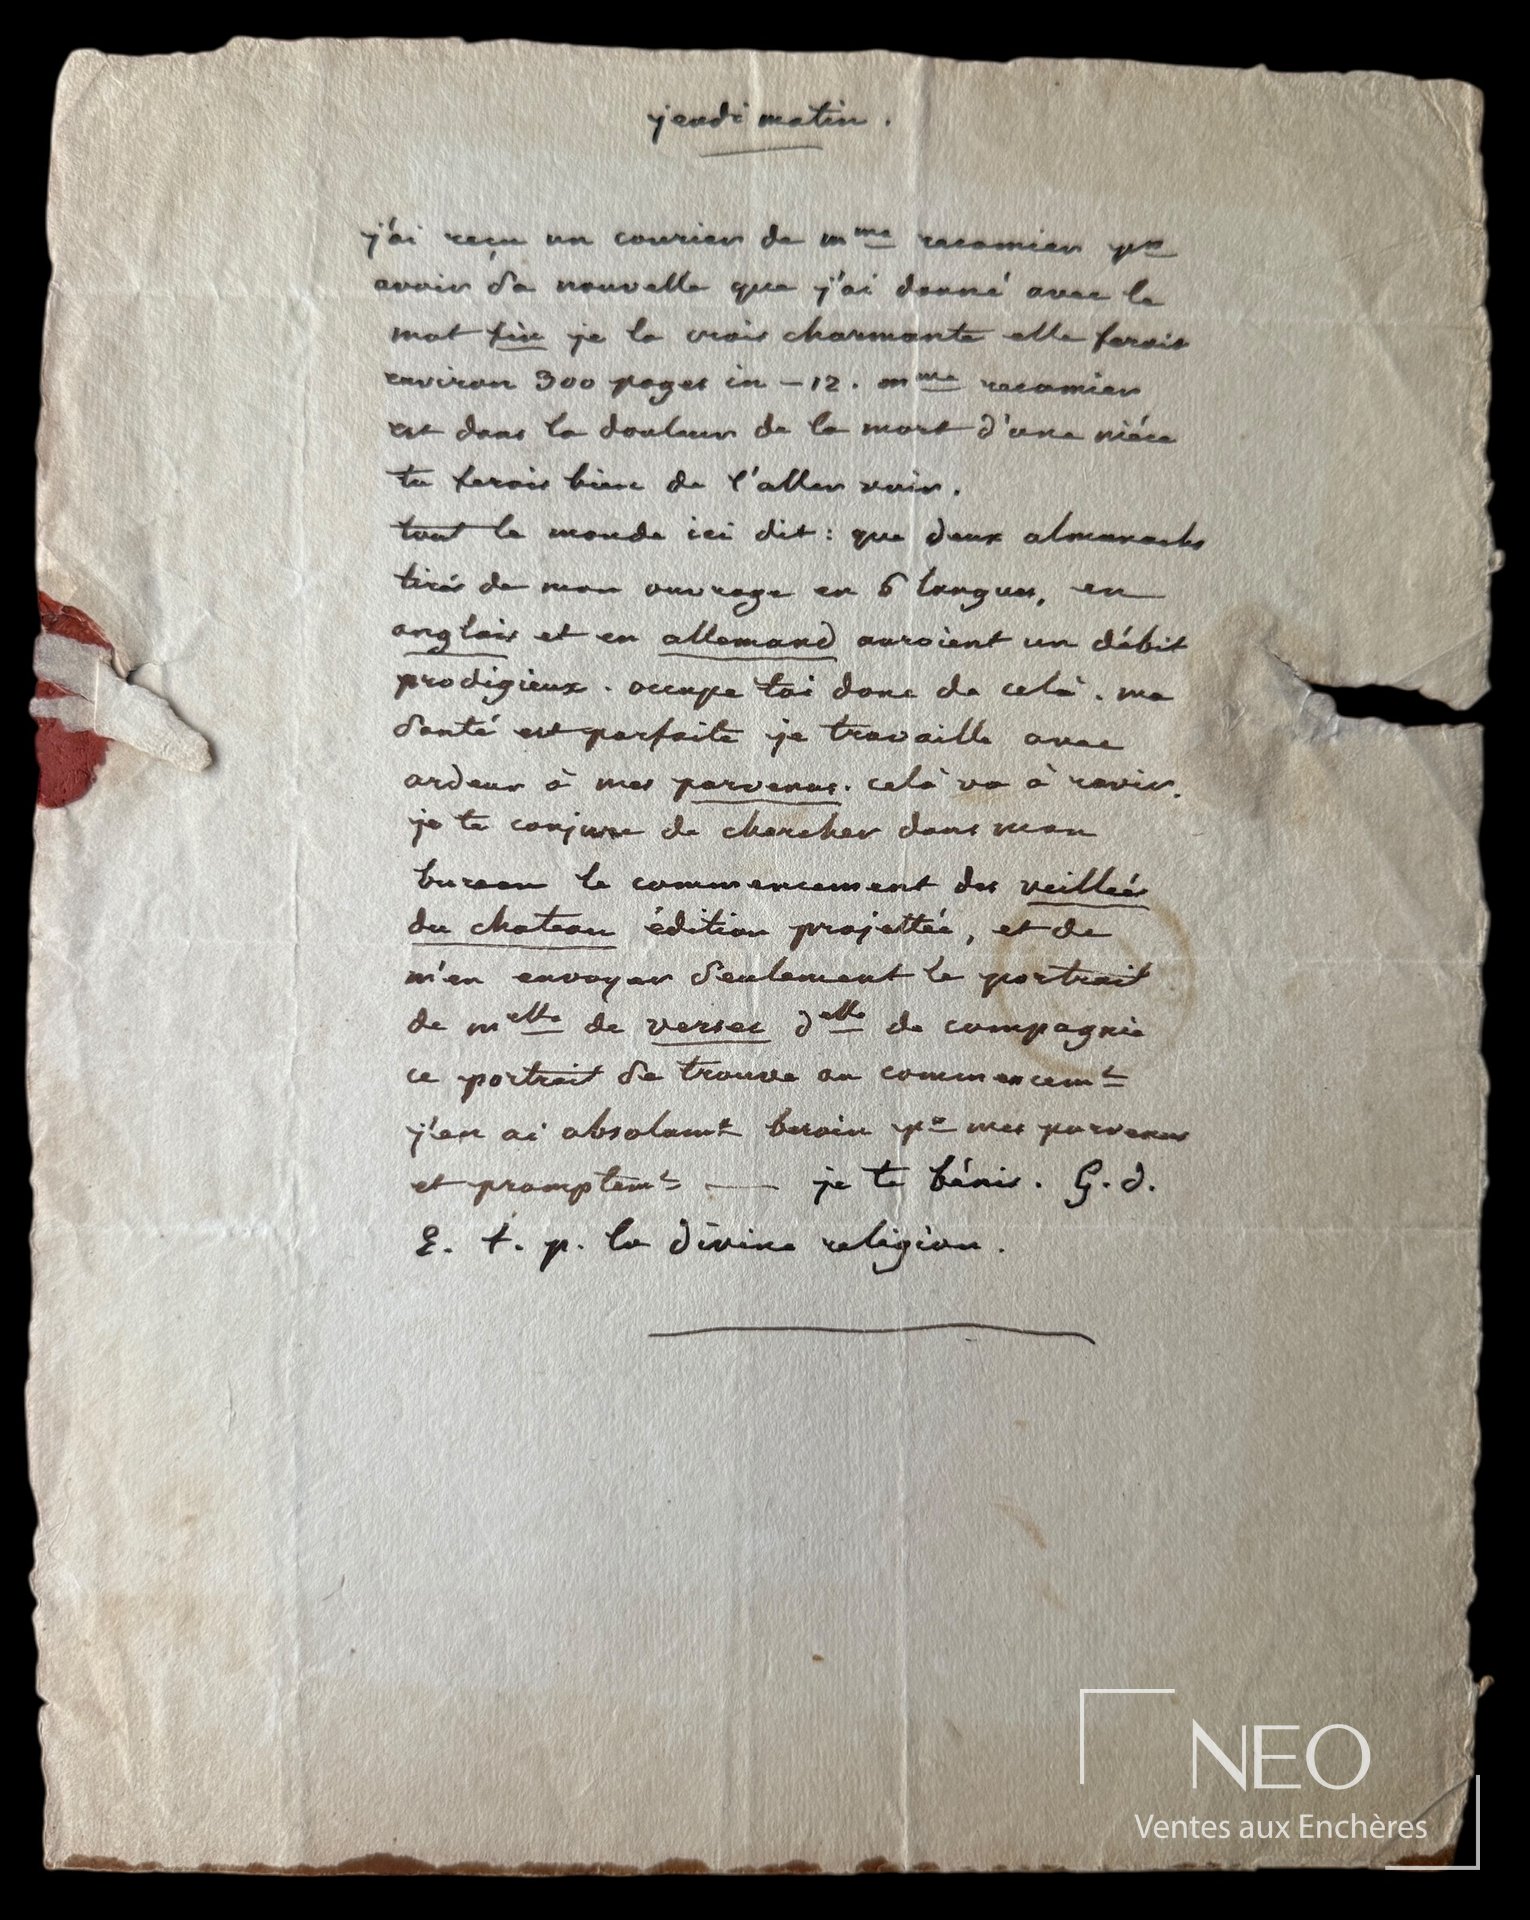 jeudi matin.
j'ai reçu un courier de mme recamier pr
avoir sa nouvelle que j'ai donné avec le
mot fin je la crois charmante elle ferait
environ 300 pages in-12. mme recamier
est dans la douleur de la mort d'une niéce
tu ferais bien de l'aller voir.
tout le monde ici dit: que deux almanachs
tirés de mon ouvrage en 6 langues, en
anglais et en allemand auroient un débit
prodigieux. occupe toi donc de celà. ma
santé est parfaite je travaille avec
ardeur à mes parvenus. celà va à ravir.
je te conjure de chercher dans mon
bureau le commencement des veilleés
du chateau édition projettée, et de
m'en envoyer seulement le portrait
de melle de verser delle de compagnie
ce portrait se trouve au commencemt
j'en ai absolumt besoin pr mes parvenus
et promptemt — je te bénis. G. d.
E. f. p. la divine religion.
NEO
Ventes aux Enchères